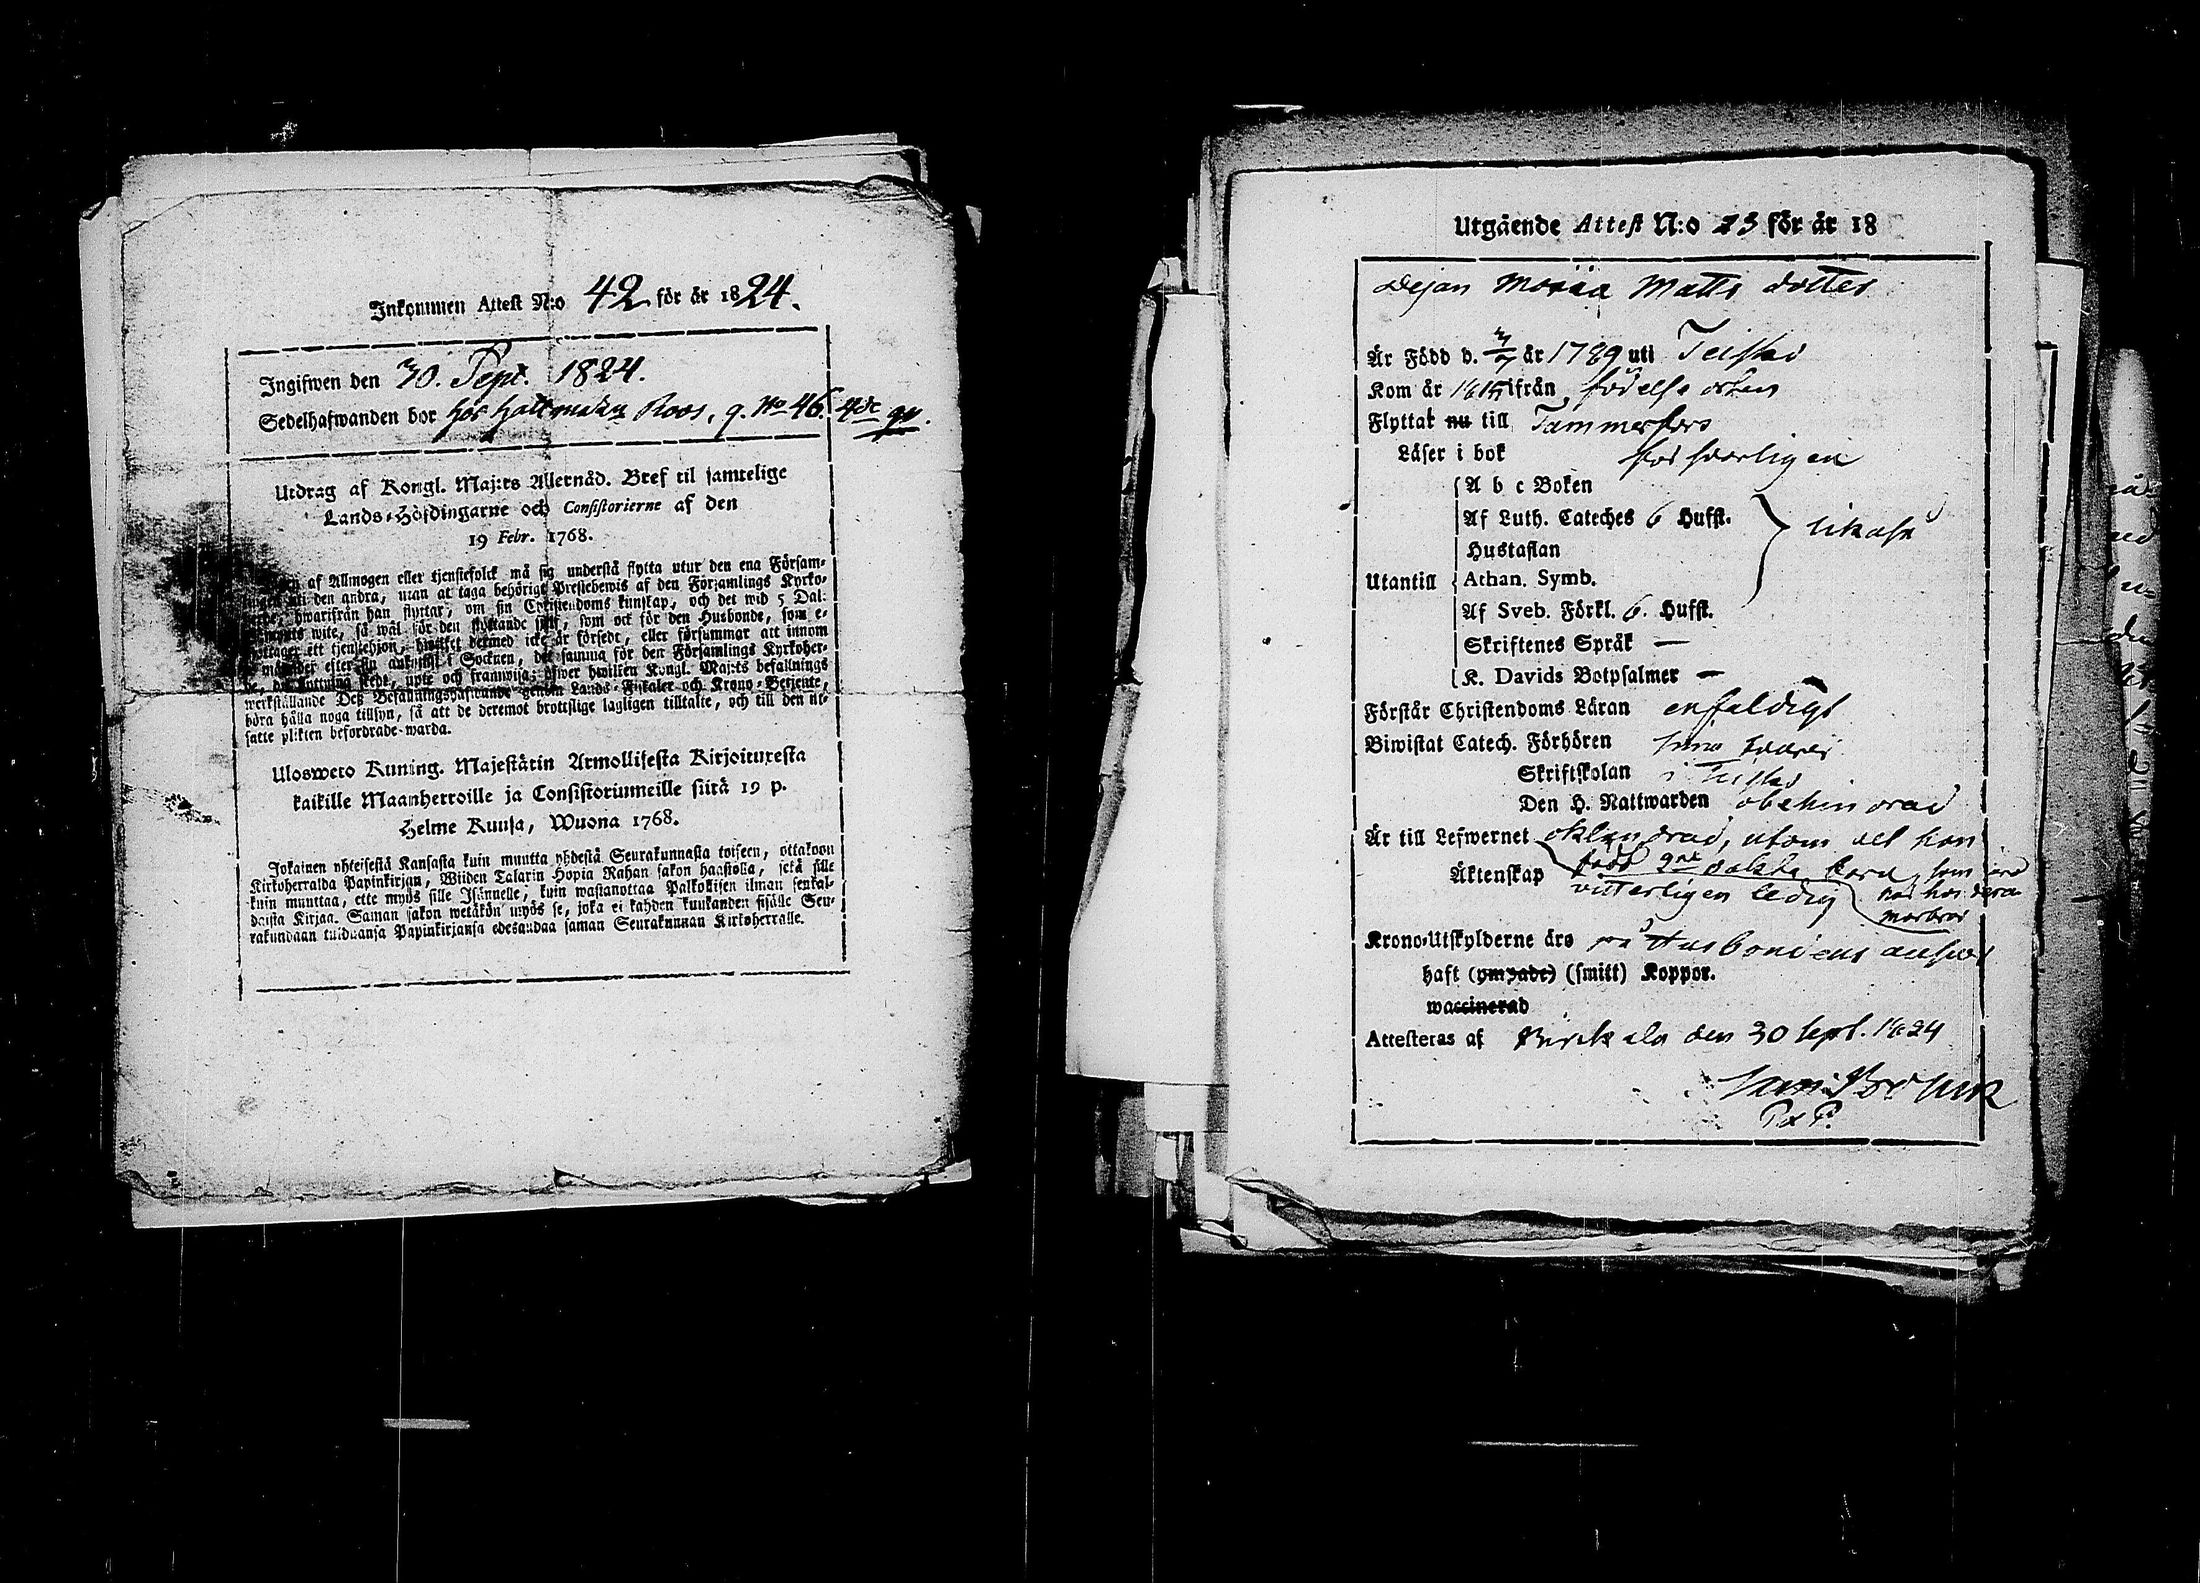 Inkommen Attest N:o 42 för år 1824.
Ingifwen den 30. Sept. 1824.
Sedelhafwanden bor hos Hattmakn Roos, g. No 46. 4de qu.
Utdrag af Kongl. Maj:ts Allernåd. Bref til samtelige
Lands-Höfdingarne och Consistorierne af den
19 Febr. 1768.
af Allmogen eller tjenstefolck må sig understå flytta utur den ena Försam-
den andra, utan at taga behörigt Prestebewis af den Församlings Kyrko-
hwarifrån han flyttar, om sin Christendoms kunskap, och det wid 5 Dal:
wite, så wäl för den flyttande sielf, som ock för den Husbonde, som e-
mottager ett tjenstehjon, hwilket dermed icke är försedt, eller försummar att innom
månader efter sin ankomst i Socknen, det samma för den Församlings Kyrkoher-
de, dit flyttning skedt, upte och framwisa; öfwer hwilken Kongl. Maj:ts befallnings
werkställande Deß Befallningshafwande genom Lands-Fiskaler och Krono-Betjente,
böra hålla noga tillsyn, så att de deremot brottslige lagligen tilltalte, och till den ut-
satte plikten befordrade warda.
Ulosweto Kuning. Majestätin Armollisesta Kirjoituxesta
kaikille Maanherroille ja Consistoriumeille siitä 19 p.
Helme Kuusa, Wuona 1768.
Jokainen yhteisestä Kansasta kuin muutta yhdestä Seurakunnasta toiseen, ottakoon
Kirkoherralda Papinkirjan, Wiiden Talarin Hopia Rahan sakon haastolla, setä sille
kuin muuttaa, ette myös sille Isännelle, kuin wastanottaa Palkollisen ilman senkal-
daista Kirjaa. Saman sakon wetäkön myös se, joka ei kahden kuukauden sisälle Seu-
rakundaan tulduansa Papinkirjansa edesandaa saman Seurakunnan Kirkoherralle.
Utgående Attest N:o 23 för år 18
Dejan Maria Matts dotter
Är Född d. 3/7 år 1789 uti Teisko
Kom år ifrån födelse orten
Flyttat nu till Tammerfors
Läser i bok försvarligen
A b c Boken
Af Luth. Cateches 6 Hufst.
likaså
Hustaflan
Utantill Athan. Symb.
Af Sveb. Förkl. 6. Hufst.
Skriftenes Språk —
K. Davids Botpsalmer —
Förstår Christendoms Läran enfaldigt
Biwistat Catech. Förhören
Skriftskolan i Teisko
Den H. Nattwarden obehindrad
Är till Lefwernet oklandrad, utom att hon
född oäkta barn, som äro
Äktenskap vitterligen ledig
morbror
Krono-Utskylderne äro på Husbondens ansvar
haft (ympade) (smitt) Koppor.
waccinerad
Attesteras af Birkala den 30 Sept. 1824